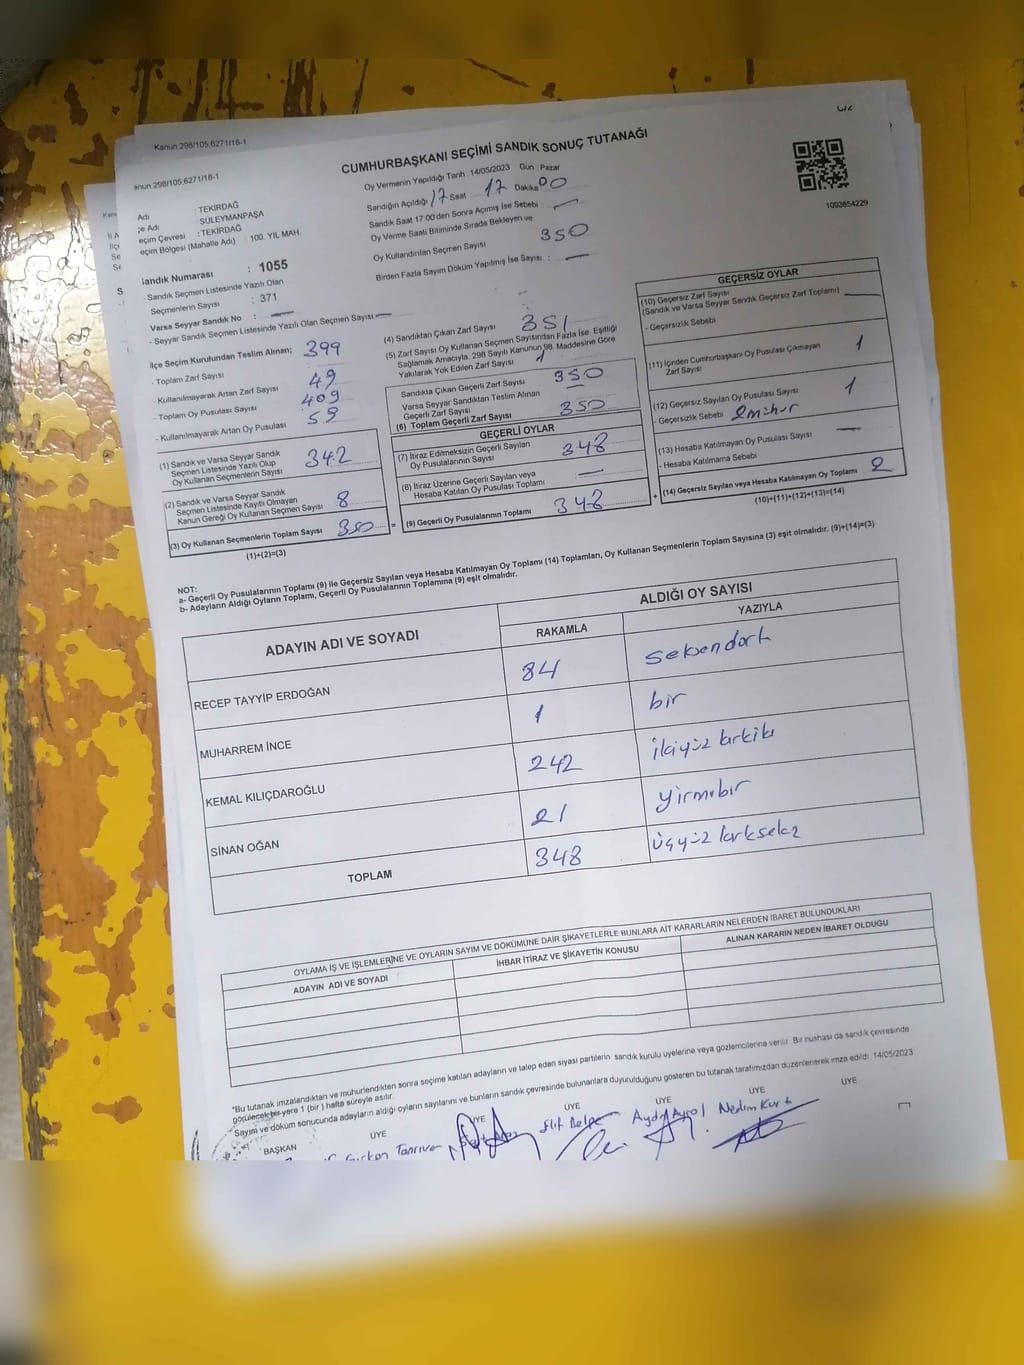 C/2
Kanun:298/105;6271/18-1
anun:298/105;6271/18-1
CUMHURBAŞKANI SEÇİMİ SANDIK SONUÇ TUTANAĞI
Oy Vermenin Yapıldığı Tarih 14/05/2023 Gün Pazar
Adı : TEKİRDAĞ
çe Adı : SÜLEYMANPAŞA
eçim Çevresi : TEKİRDAĞ
eçim Bölgesi (Mahalle Adı) : 100. YIL MAH.
Sandığın Açıldığı 17 Saat 17 Dakika 00
Sandık Saat 17:00'den Sonra Açılmış İse Sebebi : —
Oy Verme Saati Bitiminde Sırada Bekleyen ve
Oy Kullandırılan Seçmen Sayısı 350
Birden Fazla Sayım Döküm Yapılmış İse Sayısı : —
1093854229
andık Numarası : 1055
- Sandık Seçmen Listesinde Yazılı Olan
Seçmenlerin Sayısı : 371
Varsa Seyyar Sandık No : —
- Seyyar Sandık Seçmen Listesinde Yazılı Olan Seçmen Sayısı —
İlçe Seçim Kurulundan Teslim Alınan;
- Toplam Zarf Sayısı 399
- Kullanılmayarak Artan Zarf Sayısı 49
- Toplam Oy Pusulası Sayısı 409
- Kullanılmayarak Artan Oy Pusulası 59
(1) Sandık ve Varsa Seyyar Sandık
Seçmen Listesinde Yazılı Olup
Oy Kullanan Seçmenlerin Sayısı 342
(2) Sandık ve Varsa Seyyar Sandık
Seçmen Listesinde Kayıtlı Olmayan
Kanun Gereği Oy Kullanan Seçmen Sayısı 8
(3) Oy Kullanan Seçmenlerin Toplam Sayısı 350 =
(1)+(2)=(3)
(4) Sandıktan Çıkan Zarf Sayısı 351
(5) Zarf Sayısı Oy Kullanan Seçmen Sayısından Fazla İse, Eşitliği
Sağlamak Amacıyla, 298 Sayılı Kanunun 98. Maddesine Göre
Yakılarak Yok Edilen Zarf Sayısı 1
Sandıkta Çıkan Geçerli Zarf Sayısı 350
Varsa Seyyar Sandıktan Teslim Alınan
Geçerli Zarf Sayısı —
(6) Toplam Geçerli Zarf Sayısı 350
GEÇERLİ OYLAR
(7) İtiraz Edilmeksizin Geçerli Sayılan
Oy Pusulalarının Sayısı 348
(8) İtiraz Üzerine Geçerli Sayılan veya
Hesaba Katılan Oy Pusulası Toplamı —
(9) Geçerli Oy Pusulalarının Toplamı 348 +
GEÇERSİZ OYLAR
(10) Geçersiz Zarf Sayısı
(Sandık ve Varsa Seyyar Sandık Geçersiz Zarf Toplamı) —
- Geçersizlik Sebebi
(11) İçinden Cumhurbaşkanı Oy Pusulası Çıkmayan
Zarf Sayısı 1
(12) Geçersiz Sayılan Oy Pusulası Sayısı 1
- Geçersizlik Sebebi 2 mühür
(13) Hesaba Katılmayan Oy Pusulası Sayısı —
- Hesaba Katılmama Sebebi
(14) Geçersiz Sayılan veya Hesaba Katılmayan Oy Toplamı 2
(10)+(11)+(12)+(13)=(14)
NOT:
a- Geçerli Oy Pusulalarının Toplamı (9) ile Geçersiz Sayılan veya Hesaba Katılmayan Oy Toplamı (14) Toplamları, Oy Kullanan Seçmenlerin Toplam Sayısına (3) eşit olmalıdır. (9)+(14)=(3)
b- Adayların Aldığı Oyların Toplamı, Geçerli Oy Pusulalarının Toplamına (9) eşit olmalıdır.
ADAYIN ADI VE SOYADI
ALDIĞI OY SAYISI
RAKAMLA YAZIYLA
RECEP TAYYİP ERDOĞAN 84 seksendört
MUHARREM İNCE 1 bir
KEMAL KILIÇDAROĞLU 242 ikiyüz kırkiki
SİNAN OĞAN 21 yirmibir
TOPLAM 348 üçyüz kırksekiz
OYLAMA İŞ VE İŞLEMLERİNE VE OYLARIN SAYIM VE DÖKÜMÜNE DAİR ŞİKAYETLERLE BUNLARA AİT KARARLARIN NELERDEN İBARET BULUNDUKLARI
ADAYIN ADI VE SOYADI İHBAR İTİRAZ VE ŞİKAYETİN KONUSU ALINAN KARARIN NEDEN İBARET OLDUĞU
*Bu tutanak imzalandıktan ve mühürlendikten sonra seçime katılan adayların ve talep eden siyasi partilerin sandık kurulu üyelerine veya gözlemcilerine verilir. Bir nüshası da sandık çevresinde
görülecek bir yere 1 (bir) hafta süreyle asılır.
Sayım ve döküm sonucunda adayların aldığı oyların sayılarını ve bunların sandık çevresinde bulunanlara duyurulduğunu gösteren bu tutanak tarafımızdan düzenlenerek imza edildi. 14/05/2023
BAŞKAN ÜYE ÜYE ÜYE ÜYE ÜYE ÜYE
Aydın Nedim Kurt